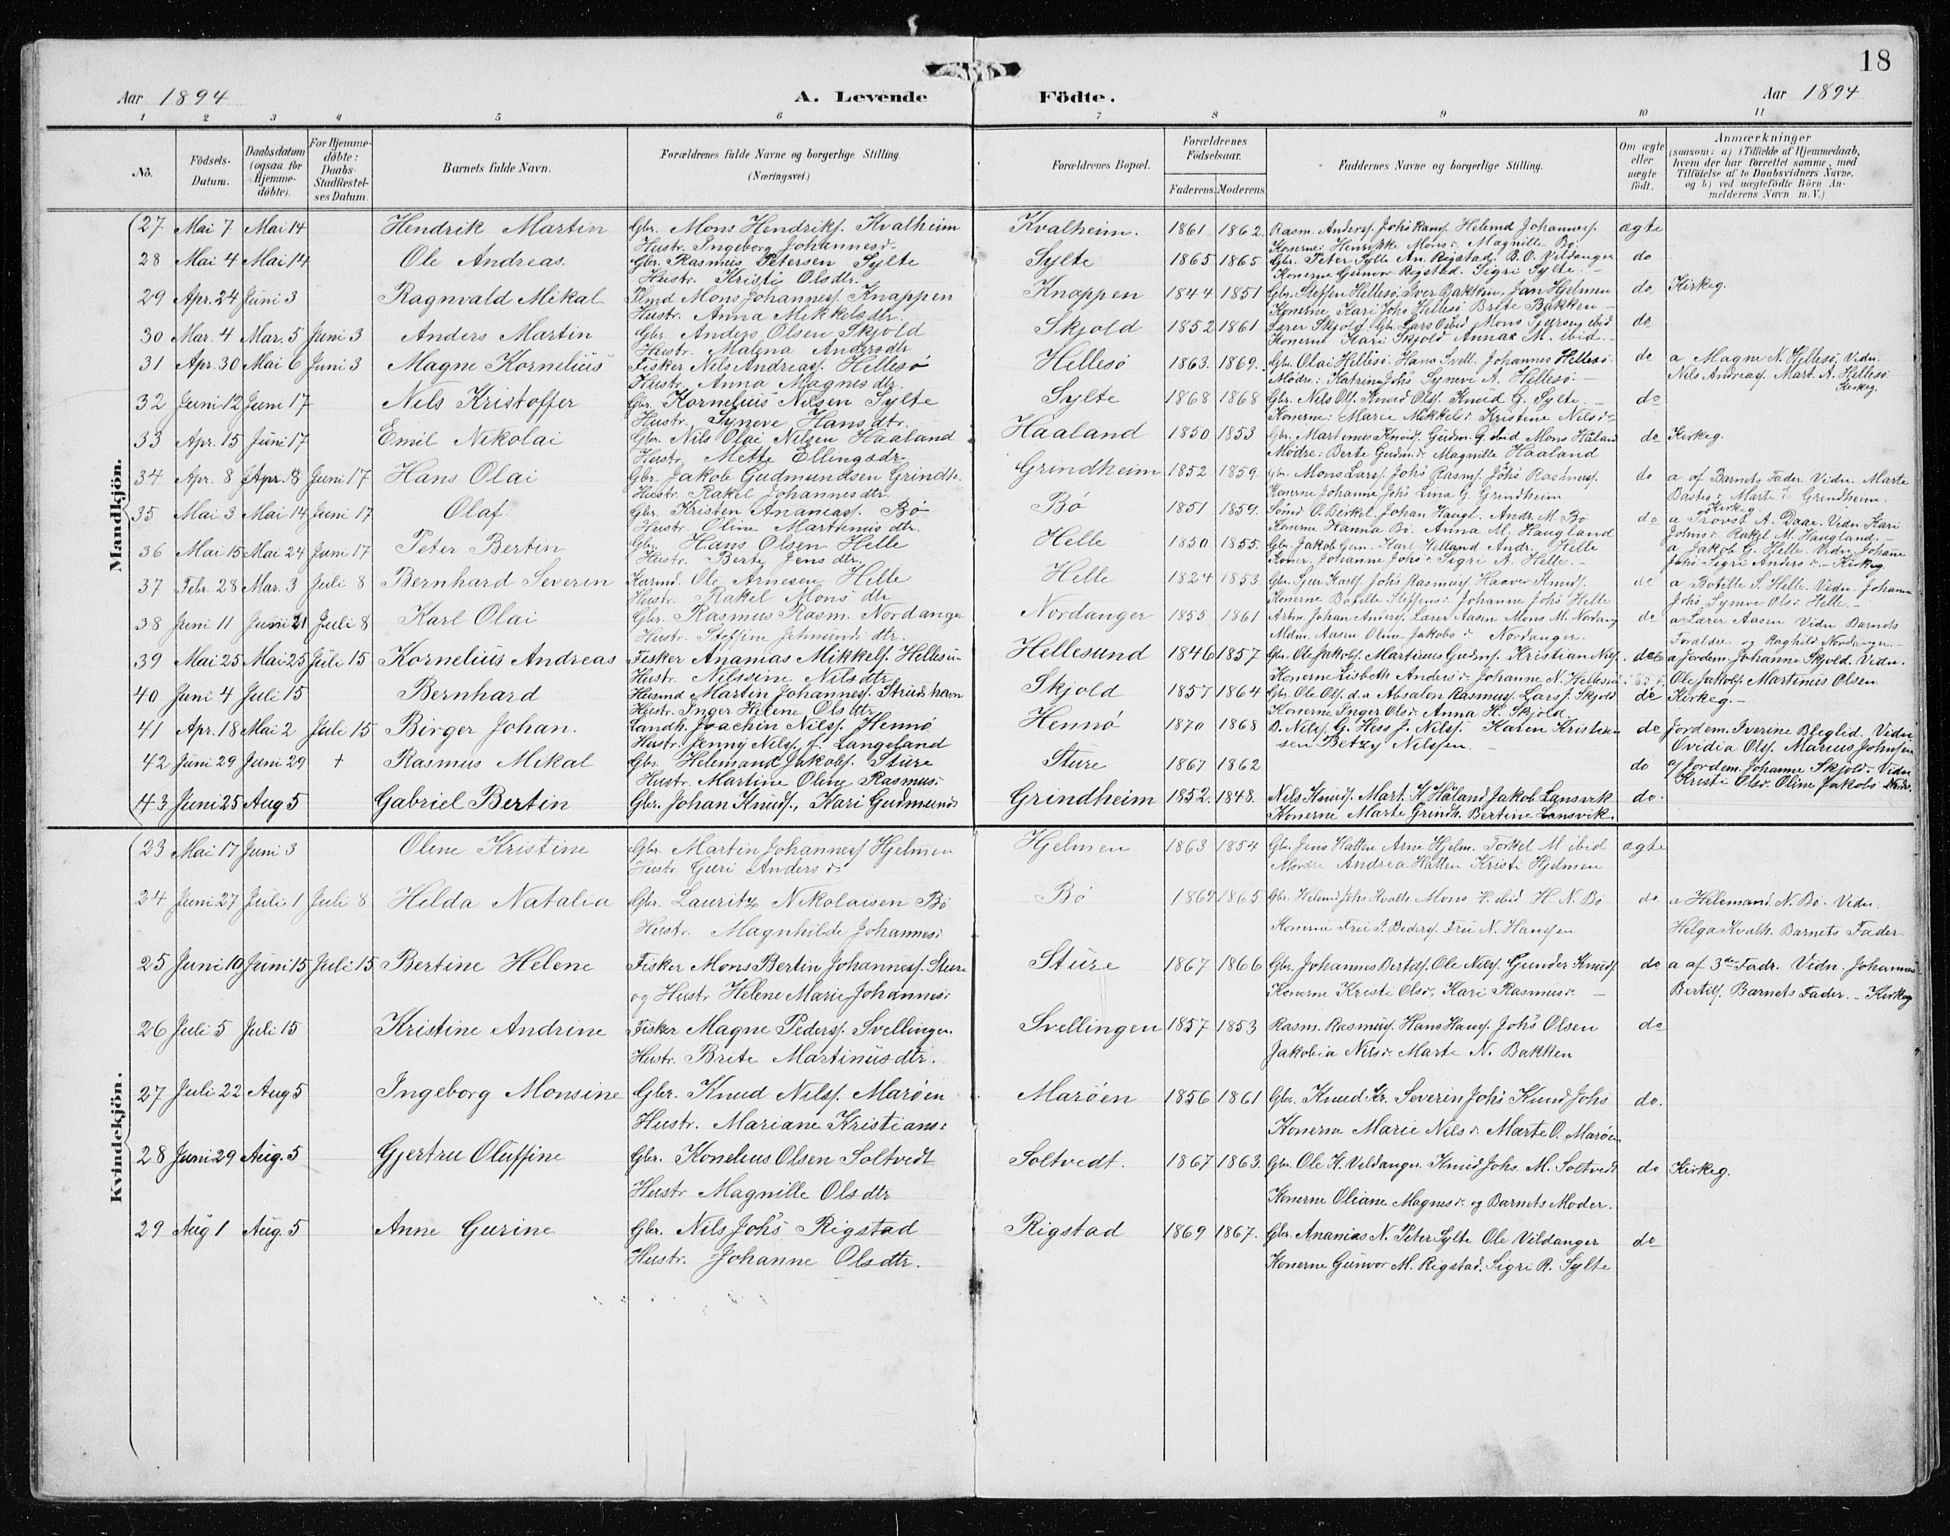 18
Aar 1894 A. Levende Födte. Aar 1894
1 2 3 4 5 6 7 8 9 10 11
No. Födsels-Datum. Daabsdatum (ogsaa for Hjemmedöbte). For Hjemmedöbte: Daabs-Stadfæstelses Datum. Barnets fulde Navn. Forældrenes fulde Navne og borgerlige Stilling. (Næringsvei) Forældrenes Bopæl. Forældrenes Födselsaar. Faderens. Moderens. Faddernes Navne og borgerlige Stilling. Om ægte eller uægte födt. Anmærkninger (saasom: a) i Tilfælde af Hjemmedaab, hvem der har forrettet samme, med Tilföielse af to Daabsvidners Navne. og b) ved uægtefödte Börn Anmelderens Navn m. V.)
Mandkjön.
27 Mai 7 Mai 14 Hendrik Martin Gbr. Mons Hendriks. Kvalheim Kvalheim. 1861 1862. Rasm. Anders. Johs Rans. Helmd Johannes. ægte
Hustr. Ingeborg Johannesd. Konerne: Henrikke Monsd. Magnille Bö
28 Mai 4 Mai 14 Ole Andreas. Gbr. Rasmus Petersen Sylte Sylte 1865 1865 Gbr. Peter Sylte An. Rigstad. B. O. Vildanger do
Hustr. Kristi Olsdtr. Konerne Gunvor Rigstad. Sigri Sylte.
29 Apr. 24 Juni 3 Ragnvald Mikal Mons Johannes. Knappen Knappen 1844 1851 Gbr. Steffen Hellesö Iver Bakken, Jan Hjelmen do Kirkeg.
Hustr. Anna Mikkelsdtr. Konerne Kari Johs Hellesö Brite Bakken
30 Mar. 4 Mar. 5 Juni 3 Anders Martin Gbr. Anders Olsen Skjold Skjold 1852 1861 Lærer Skjold Gbr. Lars ibid Mons ibid do
Hustr. Malena Andersdtr Konerne Kari Skjold Annas M. ibid.
31 Apr. 30 Mai 6 Juni 3 Magne Kornelius Fisker Nils Andreas. Hellesö Hellesö 1863. 1869. Gbr. Olai Hellesö. Hans Svell. Johannes Hellesö do a Magne N. Hellesö Vidn.
Hustr. Anna Magnesdtr. Mödre: Katrina Johs Syneve A. Hellesö. Nils Andreas. Mart. A. Hellesö
Kirkeg.
32 Juni 12 Juni 17 Nils Kristoffer Gbr. Kornelius Nilsen Sylte Sylte 1868 1868 Gbr. Nils Ols. Knud Ols. Knud G. Sylte. do
Hustr. Syneve Hansdtr. Konerne: Marie Mikkelsd. Kristine Nilsd.
33 Apr. 15 Juni 17 Emil Nikolai Gbr. Nils Olai Nilsen Haaland Haaland 1850 1853 Gbr. Martinus Knud. Gudm. G. ibid Mons Håland do Kirkeg.
Hustr. Mette Ellingsdtr Mödre: Berte Gudm.d. Magnille Haaland
34 Apr. 8 Apr. 8 Juni 17 Hans Olai Gbr. Jakob Gudmundsen Grindh. Grindheim 1852 1859. Gbr. Mons Lars. Johs Rasm. Johs Rasmus. do a af Barnets Fader Vidn. Marte
Hustr. Rakel Johannesdtr. Konerne Johanne Johs Lina G. Grindheim Marte Grindheim.
Kirkeg.
35 Mai 3 Mai 14 Juni 17 Olaf Gbr. Kristen Ananias. Bö Bö 1851 1859. O. Birkel. Johan Haugl. Andr. M. Bö do a Provst A. Daae. Vidn Kari
Hustr. Oline Martinusdtr. Konerne Hanna Bö. Anna M. Haugland Johnsd. Rakel M. Haugland.
36 Mai 15 Mai 24 Juni 17 Peter Bertin Gbr. Hans Olsen Helle Helle 1850 1855. Gbr. Jakob Gun. Karl Helland Andr. Helle a Jakob G. Helle Vidn Johanne
Hustr. Berte Jensdtr. Koner. Johanne Johsd. Sigri A. Helle. Johs Sigri Andersd. Kirkeg.
37 Febr. 28 Mar. 3 Juli 8 Bernhard Severin Ole Arnesen Helle Helle 1824 1853 Gbr. Gjer Karls. Johs Rasmus. Haaver Knuds. do a Botille S. Helle. Vidn Johanna
Hustr. Rakel Monsdtr Konerne Botille Steffensd. Johanne Johs Helle Johs. Syneve Olsd. Helle.
38 Juni 11 Juni 21 Juli 8 Karl Olai Gbr. Rasmus Rasm. Nordange Nordanger 1855 1861 Arbm. Johan Anders. Lærer Aasen Mons M. Nordang do a Lærer Aasen Vidn Barnets
Hustr. Steffine Johnsdtr. Aasen Oline Jakobsd. Nordanger. Forældre. og Raghild Nordanger.
39 Mai 25 Mai 25 Juli 15 Kornelius Andreas Fisker Ananias Mikkels. Hellesun Hellesund 1846 1857 Gbr. Ole Jakobs. Martinus Gudm. Kristian Nils. do a Jordem. Johanne Skjold. Vidn.
Hustr. Nilssine Nilsdtr Konerne Lisbeth Andersd. Johanne N. Hellesund Ole Jakobs. Martinus Olsen
40 Juni 4 Juli 15 Bernhard Husmd Martin Johannes. Skjold 1857 1864 Gbr. Ole Ols. Absalon Rasmus. Lars J. Skjold do Kirkeg.
Hustr. Inger Helene Olsdtr Konerne Inger Olsd. Anna H. Skjold
41 Apr. 18 Mai 2 Juli 15 Birger Johan. Landh. Joachin Nils. Hennö Hennö 1870 1868 D. Nils. G. Hess J. Nils. Karen Kristensen do Jordem. Iverine Bleglid. Vidn
Hustr. Jenny Nils. f. Langeland Betzy Nilssen. Ovidia Ols. Marius Johnsen
42 Juni 29 Juni 29 + Rasmus Mikal Gbr. Helemand Jakobs. Sture Sture 1867 1862 do a Jordem. Johanne Skjold. Vidn
Hustr. Martine Oline Rasmusd. Kristi Olsd. Oline Jakobsd
43 Juni 25 Aug 5 Gabriel Bertin Gbr. Johan Knuds., Kari Gudmunds Grindheim 1852. 1848. Nils Knuds. Mart. K Håland Jakob Lansvik do.
Konerne Marte Grindh. Bertine Lansvik.
Kvindekjön.
23 Mai 17 Juni 3 Oline Kristine Gbr. Martin Johannes. Hjelmen Hjelmen 1863 1854 Gbr. Jens Hatten Arne Hjelm. Torkel M ibid ægte
Hustr Guri Andersd. Mödre Andrea Hatten Kristi Hjelmen
24 Juni 27 Juli 1 Juli 8 Helda Natalia Gbr. Lauritz Nikolaisen Bö Bö 1869 1865 Gbr. Helemd Johs Kvalh. Mons H. ibid H. N. Bö do a Helemand N. Bö. Vidn.
Hustr. Magnhilde Johannesd. Konerne Frü S. Peders. Frü N. Hansen Helga Kvalh. Barnets Fader
25 Juni 10 Juni 15 Juli 15 Bertine Helene Fisker Mons Bertin Johannes. Sture Sture 1867 1866 Gbr. Johannes Bertils. Ole Nils. Gunder Knuds. do a af 3die Fadr. Vidn. Johannes
og Hustr Helene Marie Johannesd. Konerne Kristi Olsd. Kari Rasmusd. Bertils. Barnets Fader. Kirkeg
26 Juli 5 Juli 15 Kristine Andrine Fisker Magne Peders. Svellingen. Svellingen 1857 1853 Rasm. Rasmus. Hans Hans. Joh's Olsen do
Hustr. Brite Martinusdtr. Jakobia Nilsd. Marte N. Bakken
27 Juli 22 Aug 5 Ingeborg Monsine Gbr. Knud Nils. Maröen Maröen 1856 1861 Gbr. Knud Kr. Severin Johs Knud Johs do.
Hustr. Mariane Kristians. Konerne Marie Nilsd. Marte O. Maröen
28 Juni 29 Aug. 5 Gjertru Oluffine Gbr. Konelius Olsen Soltvedt Soltvedt. 1867 1863. Gbr. Ole K. Vildanger. Knud Johs. M. Soltvedt do Kirkeg.
Hustr Magnille Olsdtr Konerne Oliane Magnesd. og Barnets Moder.
29 Aug 1 Aug. 5 Anne Gurine Gbr. Nils Joh's Rigstad Rigstad 1869 1867. Gbr. Ananias N. Peter Sylte Ole Vildanger do
Hustr. Johanne Olsdtr. Konerne Gunvor M. Rigstad. Sigri R. Sylte